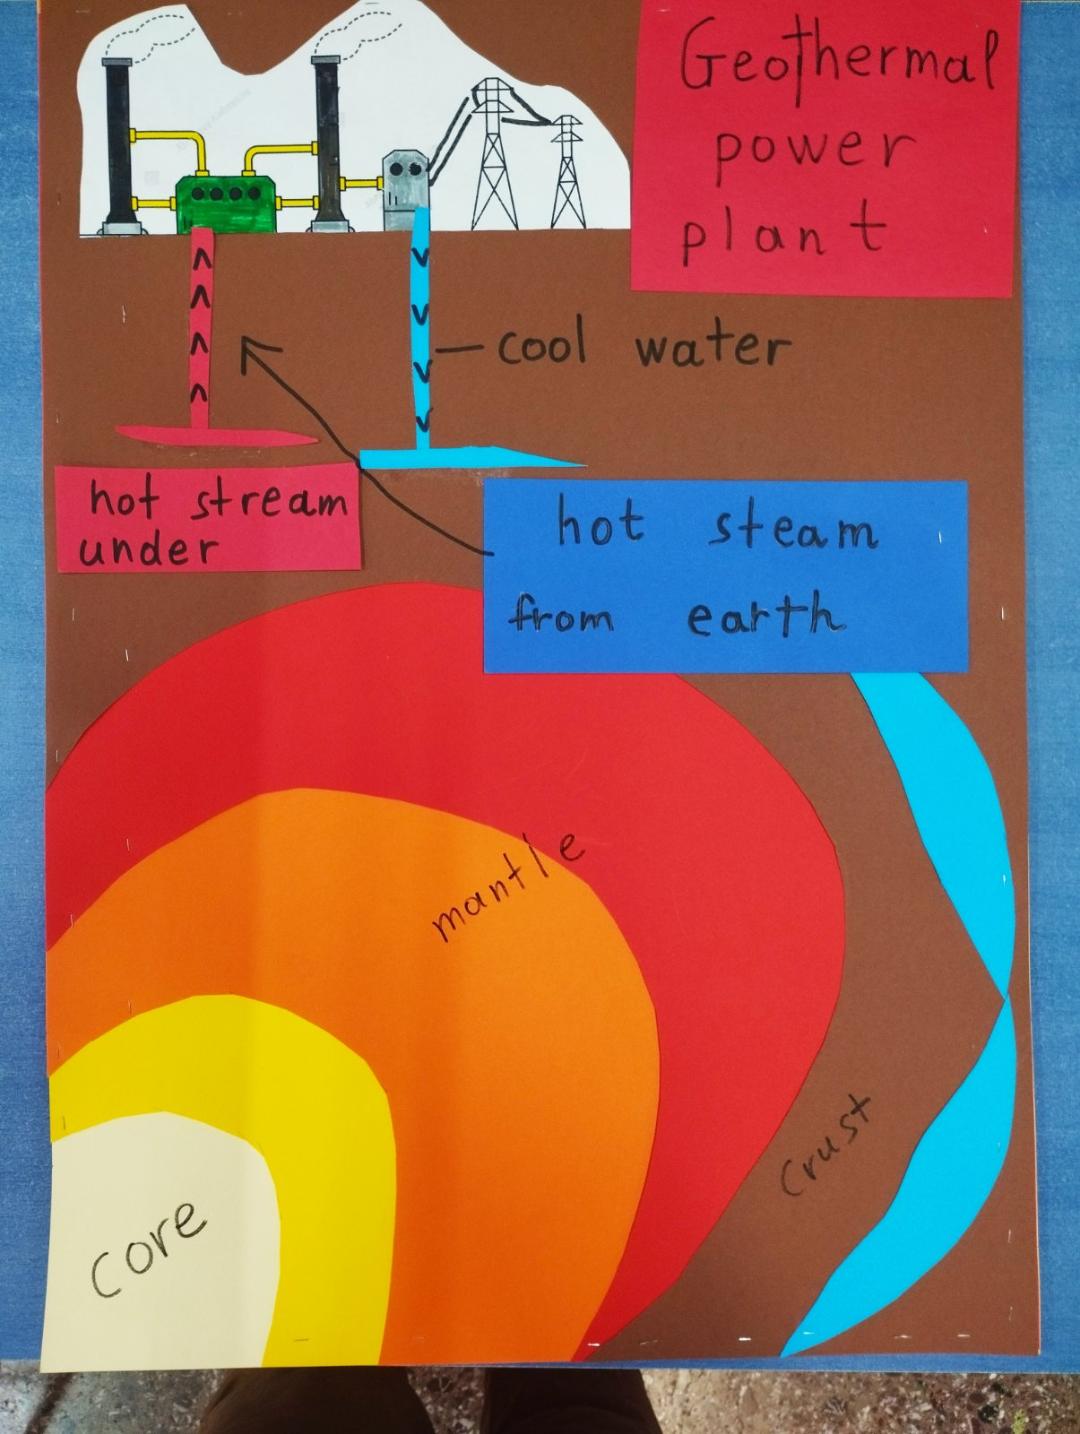 Geothermal
power
plant
cool water
hot stream
under
hot steam
from earth
mantle
crust
core